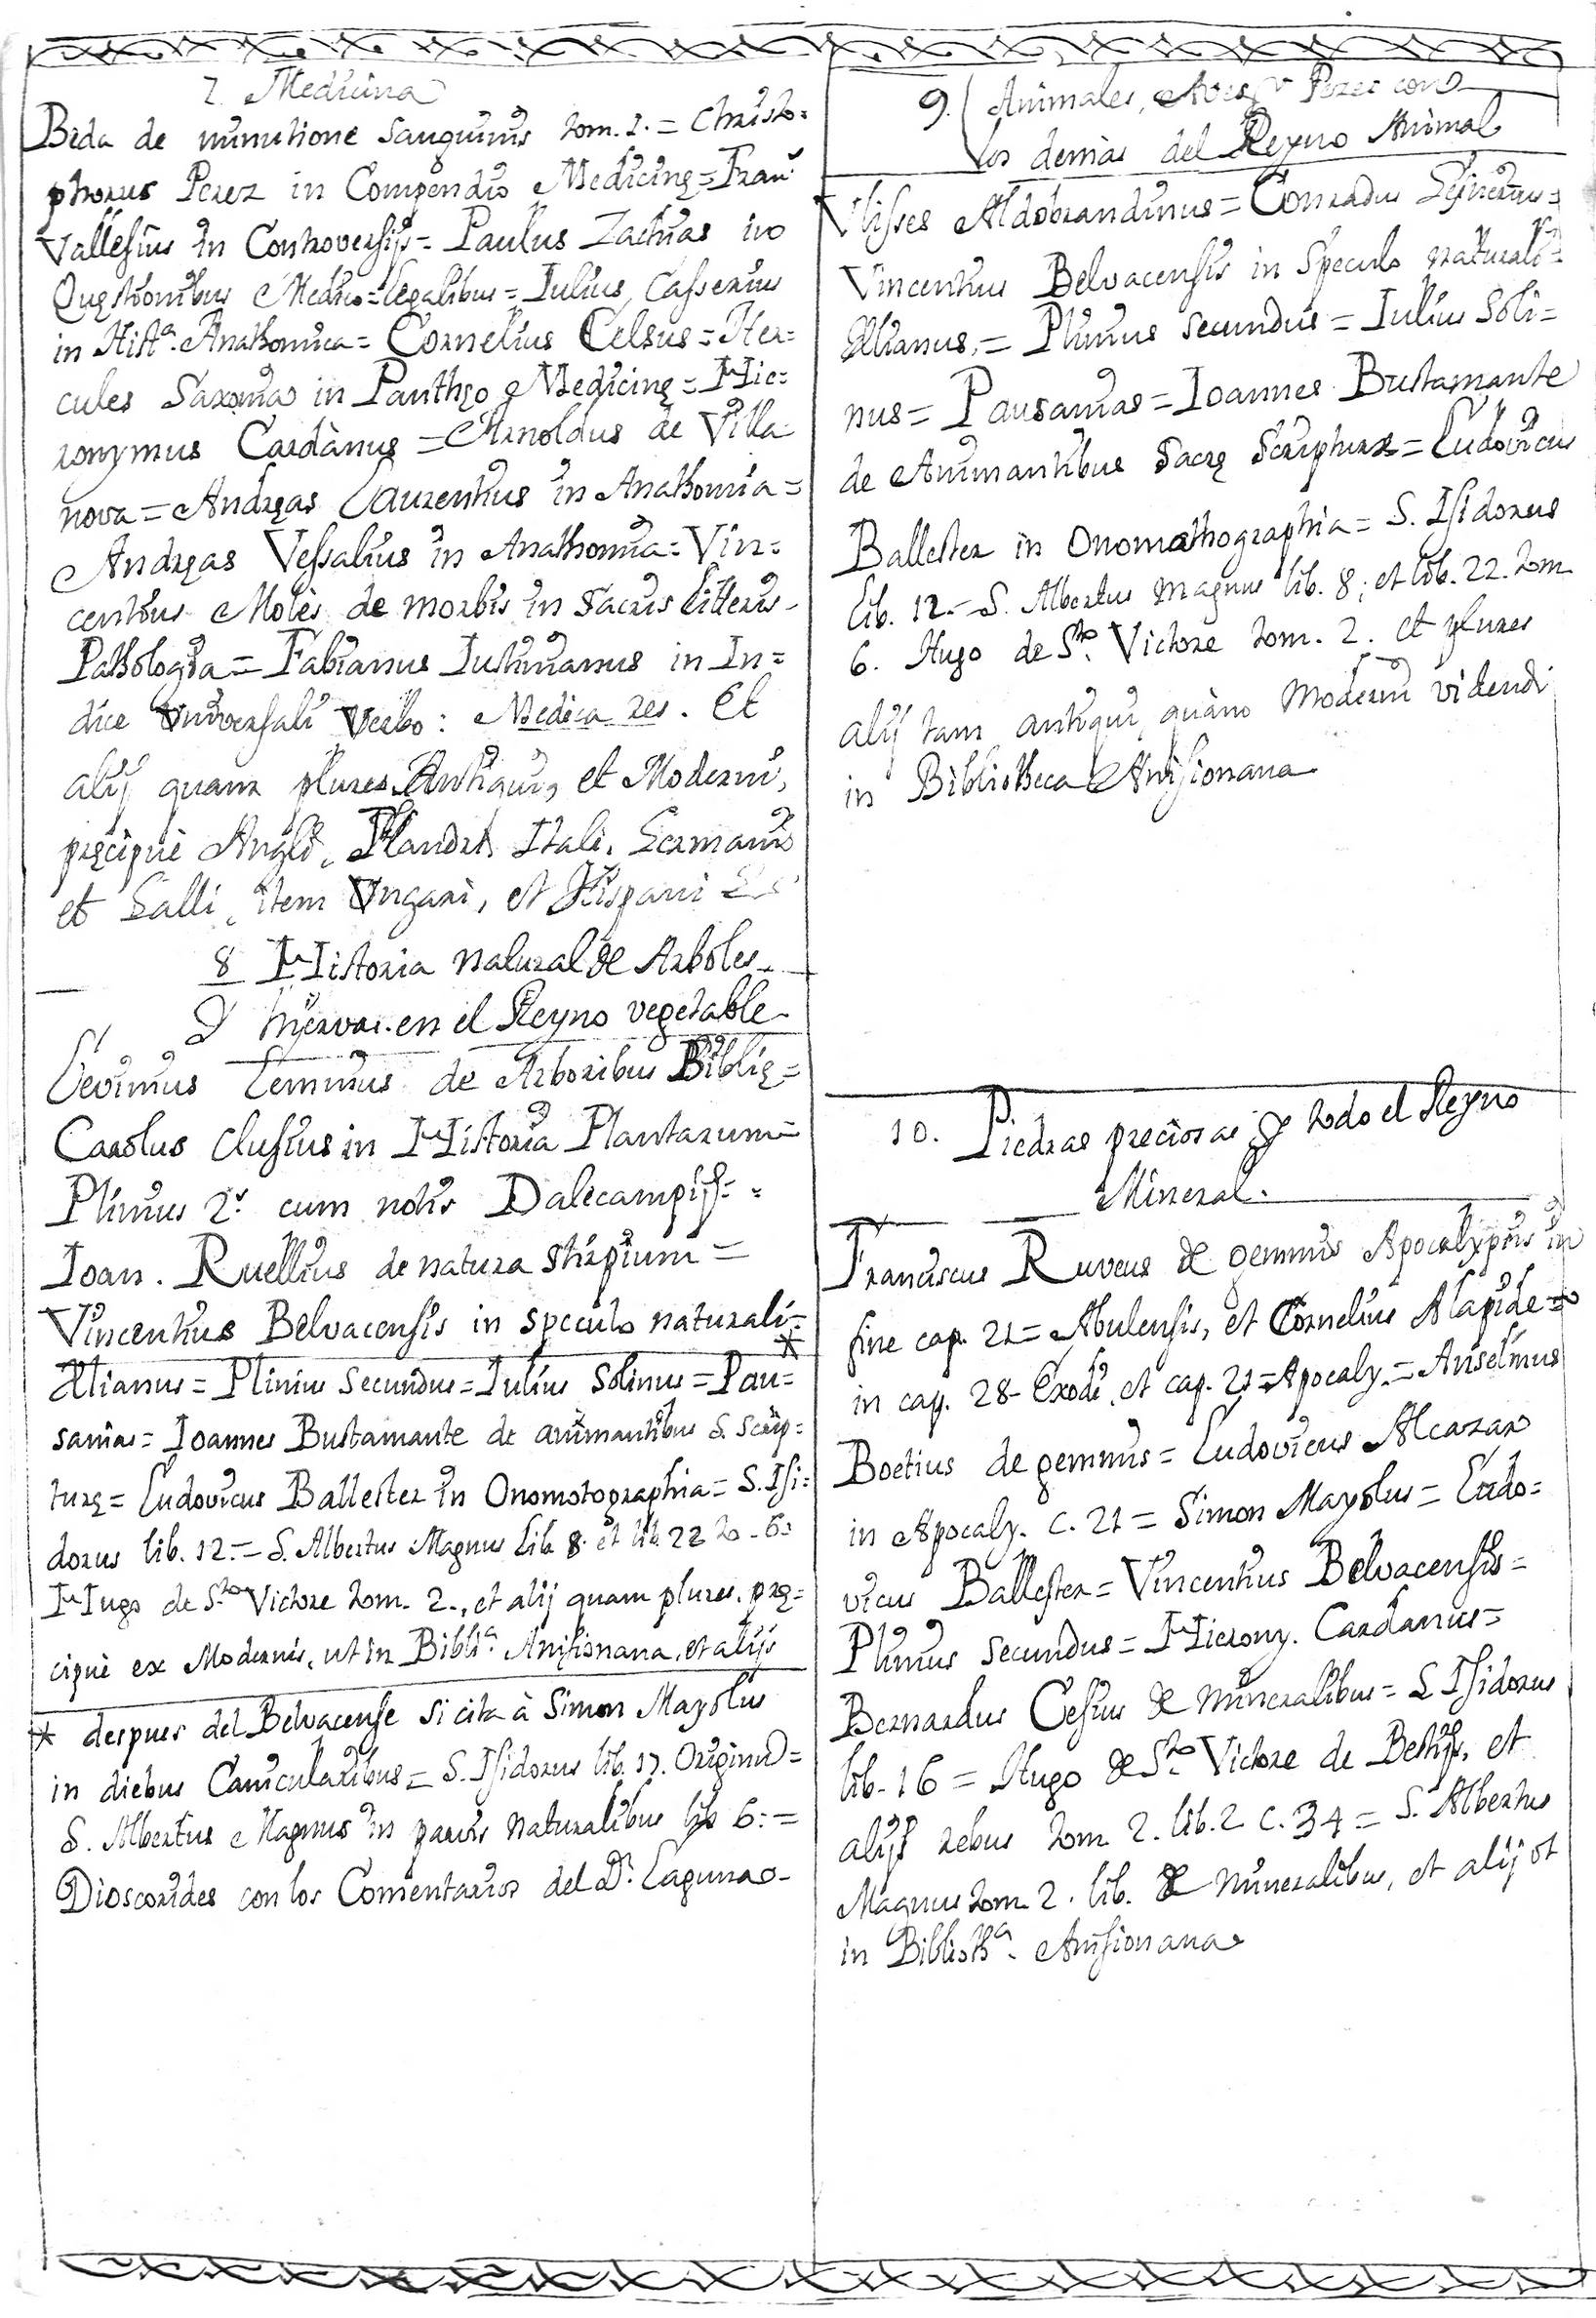 7. Medicina
Beda de minutione sanguinis tom. 1. = Christo=
phorus Perez in Compendio Medicinę = Fran.
Vallesius in Controversijs = Paulus Zachias in
Quęstionibus Medico=legalibus = Iulius Casserius
in Hist.ª Anathomica = Cornelius Celsus = Her=
cules Saxonia in Pantheo Medicinę = Hie=
ronymus Cardànus = Arnoldus de Villa
nova = Andręas Laurentius in Anathomia =
Andręas Vessalius in Anathomia = Vin=
centius Moles de morbis in Sacris litteris
Pathologia = Fabianus Iustinianus in In=
dice Universali Verbo: Medica res. Et
alij quam plures Antiqui, et Moderni,
pręcipuè Angli, Flandri, Itali, Germani
et Galli, item Ungari, et Hispani &c
8 Historia natural de Arboles
y hyervas en el Reyno vegetable
Levinus Lemnius de Arboribus Biblię =
Carolus Clusius in Historia Plantarum =
Plinius 2.º cum notis Dalecampij =
Ioan. Ruellius de natura stirpium =
Vincentius Belvacensis in speculo naturali = *
Ælianus = Plinius Secundus = Iulius Solinus = Pau=
sanias = Ioannes Bustamante de animantibus S. Scrip=
turę = Ludovicus Ballester in Onomotographia = S. Isi=
dorus lib. 12. = S. Albertus Magnus Lib. 8. et lib. 22 to. 6. =
Hugo de S.to Victore tom. 2., et alij quam plures, prę=
cipuè ex Modernis, ut in Bibli.ª Anisionana, et alijs
* despues del Belvacense si cita à Simon Mayolus
in diebus Canicularibus = S. Isidorus lib. 17. Originũ =
S. Albertus Magnus in parvis naturalibus lib 6. =
Dioscorides con los Comentarios del D.r Laguna
9. Animales, Aves, y Pezes con
los demàs del Reyno Animal
Ulisses Aldobrandinus = Conradus Gesnerus =
Vincentius Belvacensis in Speculo naturali =
Ælianus, = Plinius Secundus = Iulius Soli=
nus = Pausanias = Ioannes Bustamante
de Animantibus Sacrę Scripturæ = Ludovicus
Ballester in Onomathographia = S. Isidorus
lib. 12. = S. Albertus Magnus lib. 8; et lib. 22. tom.
6. Hugo de S.to Victore tom. 2. et plures
alij tam antiqui, quàm Moderni videndi
in Bibliotheca Anisionana
10. Piedras preciosas y todo el Reyno
Mineral.
Franciscus Ruveus de gemmis Apocalypsis in
fine cap. 21 = Abulensis, et Cornelius Alapide =
in cap. 28 Exodi, et cap. 21 = Apocaly. = Anselmus
Boetius de gemmis = Ludovicus Alcazar
in Apocaly. c. 21 = Simon Mayolus = Ludo=
vicus Ballester = Vincentius Belvacensis =
Plinius Secundus = Hierony. Cardanus =
Bernardus Cesius de mineralibus = S. Isidorus
lib. 16 = Hugo de S.to Victore de Bestijs, et
alijs rebus tom. 2. lib. 2 c. 34 = S. Albertus
Magnus tom. 2. lib. de mineralibus, et alij ot
in Biblioth.ª Anisionana